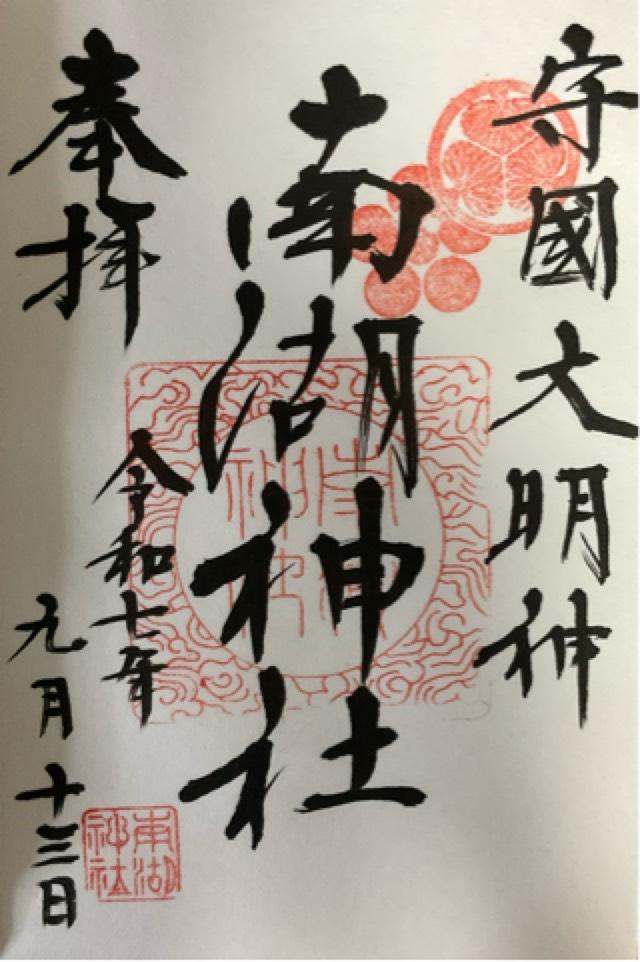 守國大明神
南湖神社
奉拝
令和七年
九月十三日
南湖
神社
南湖
神社